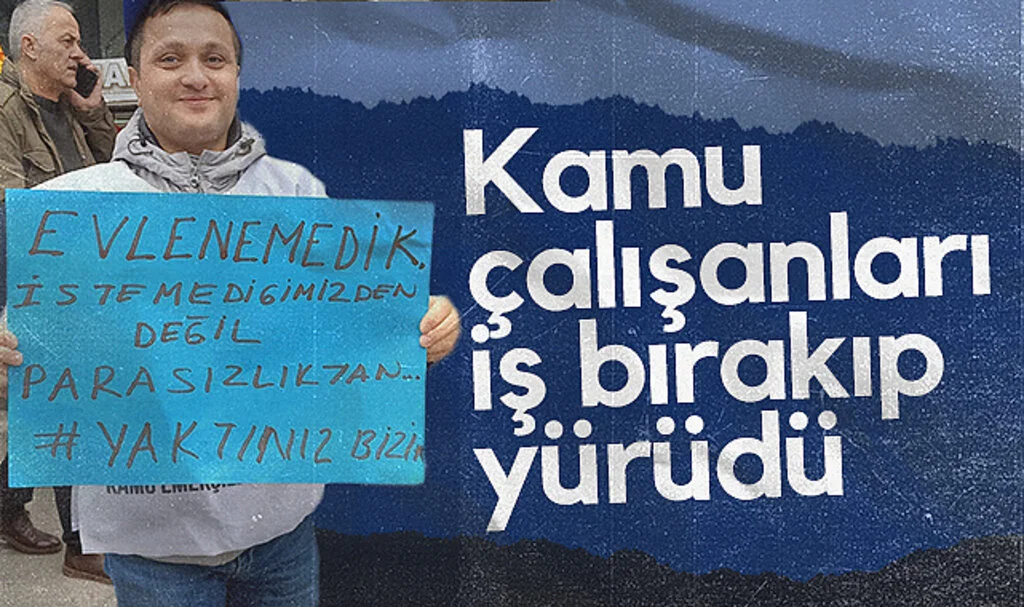 EVLENEMEDİK.
İSTEMEDIGIMIZDEN
DEĞİL
PARASIZLIKTAN...
#YAKTINIZ BİZİ
KAMU EMEKÇİL
Kamu
çalışanları
iş bırakıp
yürüdü